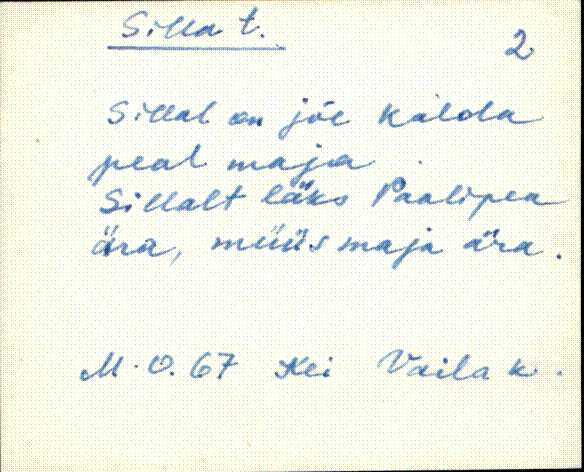 Silla t.
2
Sillal on jõe kalda
peal maja
Sillalt läks Paalipea
ära, müüs maja ära.
M.O. 67 Kei Vaila k.